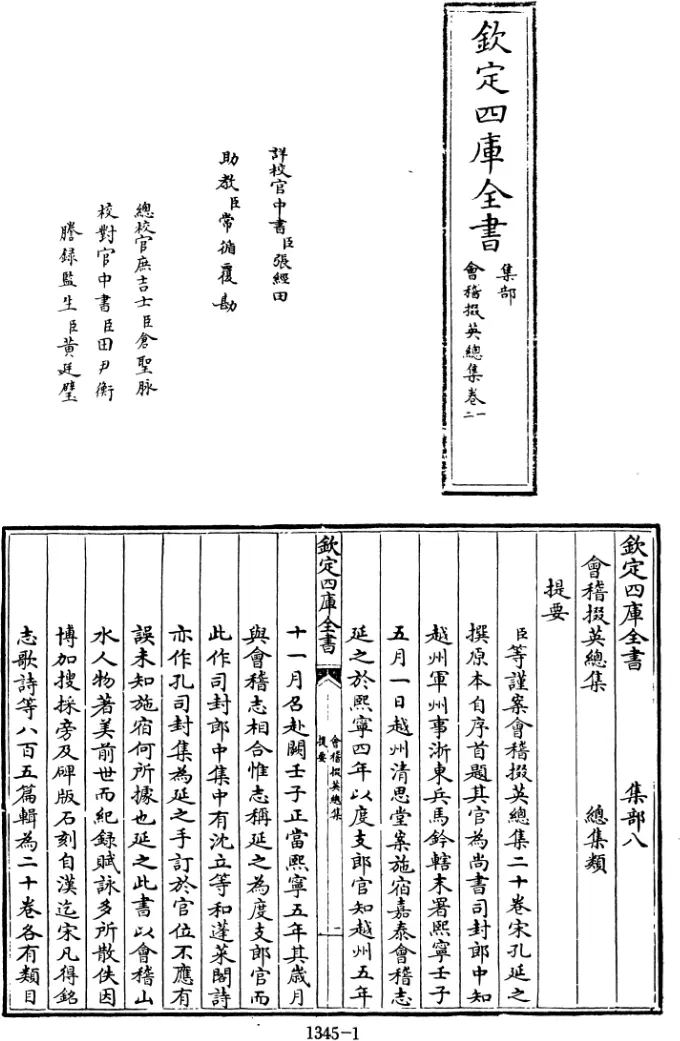 欽定四庫全書
集部
會稽掇英總集卷一
二
詳校官中書臣張經田
助教臣常循覆勘
總校官庶吉士臣倉聖脉
校對官中書臣田尹衡
謄錄監生臣黃廷璧
欽定四庫全書 集部八
會稽掇英總集 總集類
提要
臣等謹案會稽掇英總集二十卷宋孔延之
撰原本自序首題其官為尚書司封郎中知
越州軍州事浙東兵馬鈐轄末署熙寧壬子
五月一日越州清思堂案施宿嘉泰會稽志
延之於熙寧四年以度支郎官知越州五年
欽定四庫全書
會稽掇英總集
提要
一
十一月召赴闕壬子正當熙寧五年其歲月
與會稽志相合惟志稱延之為度支郎官而
此作司封郎中集中有沈立等和蓬萊閣詩
亦作孔司封集為延之手訂於官位不應有
誤未知施宿何所據也延之此書以會稽山
水人物著美前世而紀録賦詠多所散佚因
博加搜採旁及碑版石刻自漢迄宋凡得銘
志歌詩等八百五篇輯為二十卷各有類目
1345-1